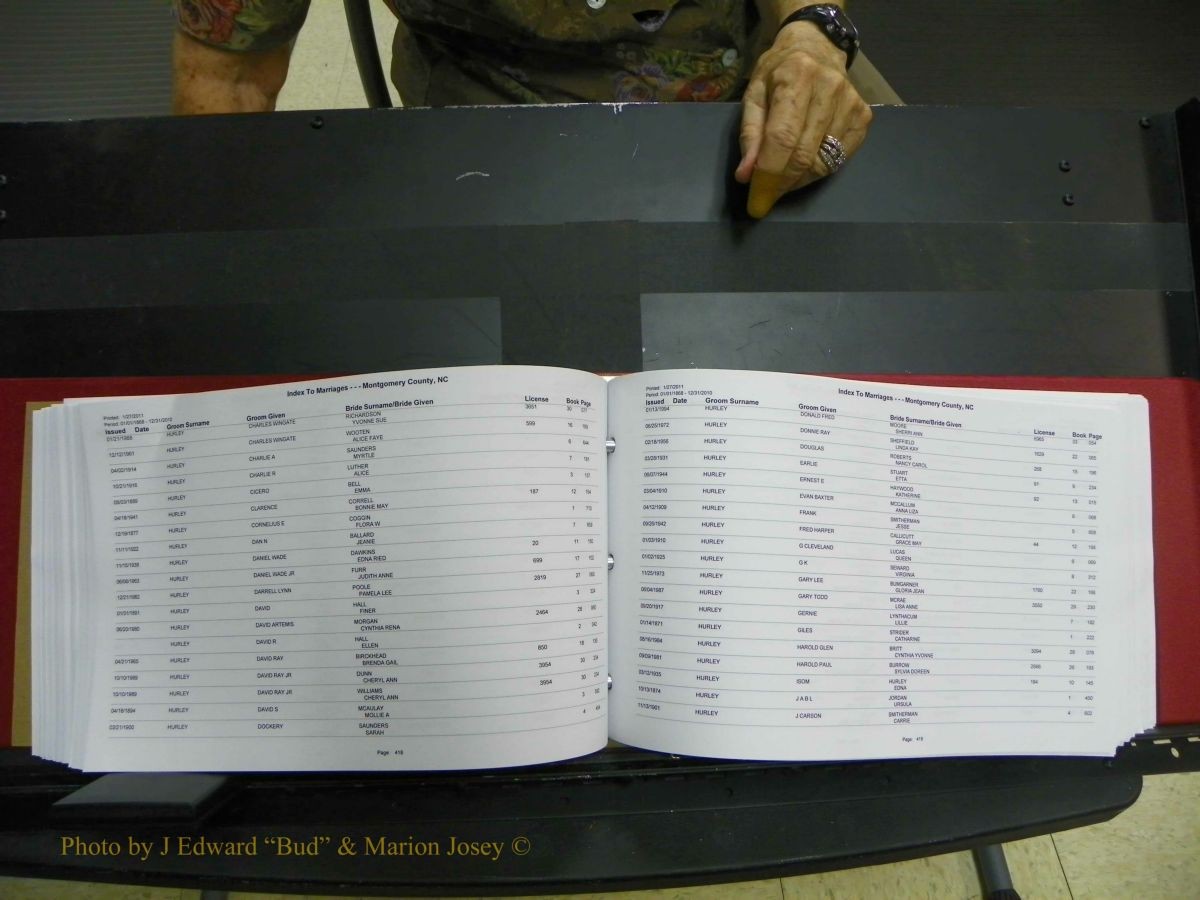 Index To Marriages - - - Montgomery County, NC
Printed: 1/27/2011
Period: 01/01/1868 - 12/31/2010
Issued Date Groom Surname Groom Given Bride Surname/Bride Given License Book Page
HURLEY CHARLES WINGATE RICHARDSON 3651 30
YVONNE SUE
12/12/1961 HURLEY CHARLES WINGATE WOOTEN 599 16
ALICE FAYE
04/02/1914 HURLEY CHARLIE A SAUNDERS 6
MYRTLE
10/21/1916 HURLEY CHARLIE R LUTHER 7
ALICE
HURLEY CICERO BELL
EMMA
04/18/1941 HURLEY CLARENCE CORRELL 187 12
BONNIE MAY
12/19/1877 HURLEY CORNELIUS E COGGIN 1
FLORA W
11/11/1922 HURLEY DAN N BALLARD 7
JEANIE
HURLEY DANIEL WADE DAWKINS 20 11
EDNA RIED
HURLEY DANIEL WADE JR FURR 699 17
JUDITH ANNE
12/21/1982 HURLEY DARRELL LYNN POOLE 2819 27
PAMELA LEE
01/01/1891 HURLEY DAVID HALL 3
FINER
06/20/1980 HURLEY DAVID ARTEMIS MORGAN 2464
CYNTHIA RENA
HURLEY DAVID R HALL 2
ELLEN
04/21/1965 HURLEY DAVID RAY BIRCKHEAD 850 18
BRENDA GAIL
10/10/1989 HURLEY DAVID RAY JR DUNN 3954 30
CHERYL ANN
10/10/1989 HURLEY DAVID RAY JR WILLIAMS 3954 30
CHERYL ANN
04/18/1894 HURLEY DAVID S MCAULAY 3
MOLLIE A
02/21/1900 HURLEY DOCKERY SAUNDERS 4
SARAH
Page: 418
Index To Marriages - - - Montgomery County, NC
Printed: 1/27/2011
Period: 01/01/1868 - 12/31/2010
Issued Date Groom Surname Groom Given Bride Surname/Bride Given License Book Page
01/13/1994 HURLEY DONALD FRED MOORE 33
SHERRI ANN
06/25/1972 HURLEY DONNIE RAY SHEFFIELD 1629 22
LINDA KAY
02/18/1956 HURLEY DOUGLAS ROBERTS 15
NANCY CAROL
03/28/1931 HURLEY EARLIE STUART 9
ETTA
HURLEY ERNEST E HAYWOOD 13
KATHERINE
03/04/1910 HURLEY EVAN BAXTER MCCALLUM
ANNA LIZA
04/12/1909 HURLEY FRANK SMITHERMAN
JESSE
09/26/1942 HURLEY FRED HARPER CALLICUTT 44 12
GRACE MAY
01/03/1910 HURLEY G CLEVELAND LUCAS
QUEEN
01/02/1925 HURLEY G K SEWARD
VIRGINIA
11/25/1973 HURLEY GARY LEE BUMGARNER 22
GLORIA JEAN
HURLEY GARY TODD MCRAE 29 230
LISA ANNE
HURLEY GERNIE LYNTHACUM 7
LILLIE
01/14/1871 HURLEY GILES STRIDER 1 222
CATHARINE
HURLEY HAROLD GLEN BRITT 3094 28
CYNTHIA YVONNE
09/09/1981 HURLEY HAROLD PAUL BURROW 26
SYLVIA DOREEN
03/12/1935 HURLEY ISOM HURLEY 10 145
EDNA
10/13/1874 HURLEY J A B L JORDAN 1
URSULA
11/13/1901 HURLEY J CARSON SMITHERMAN 4
CARRIE
Page: 419
Photo by J Edward “Bud” & Marion Josey ©